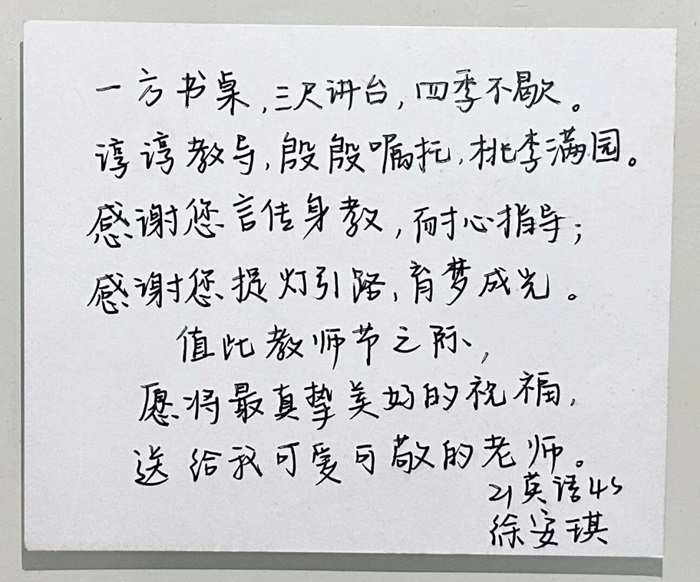 一方书桌,三尺讲台,四季不歇。
谆谆教导,殷殷嘱托,桃李满园。
感谢您言传身教,耐心指导;
感谢您提灯引路,育梦成光。
值此教师节之际,
愿将最真挚美好的祝福,
送给我可爱可敬的老师。
21英语4S
徐安琪